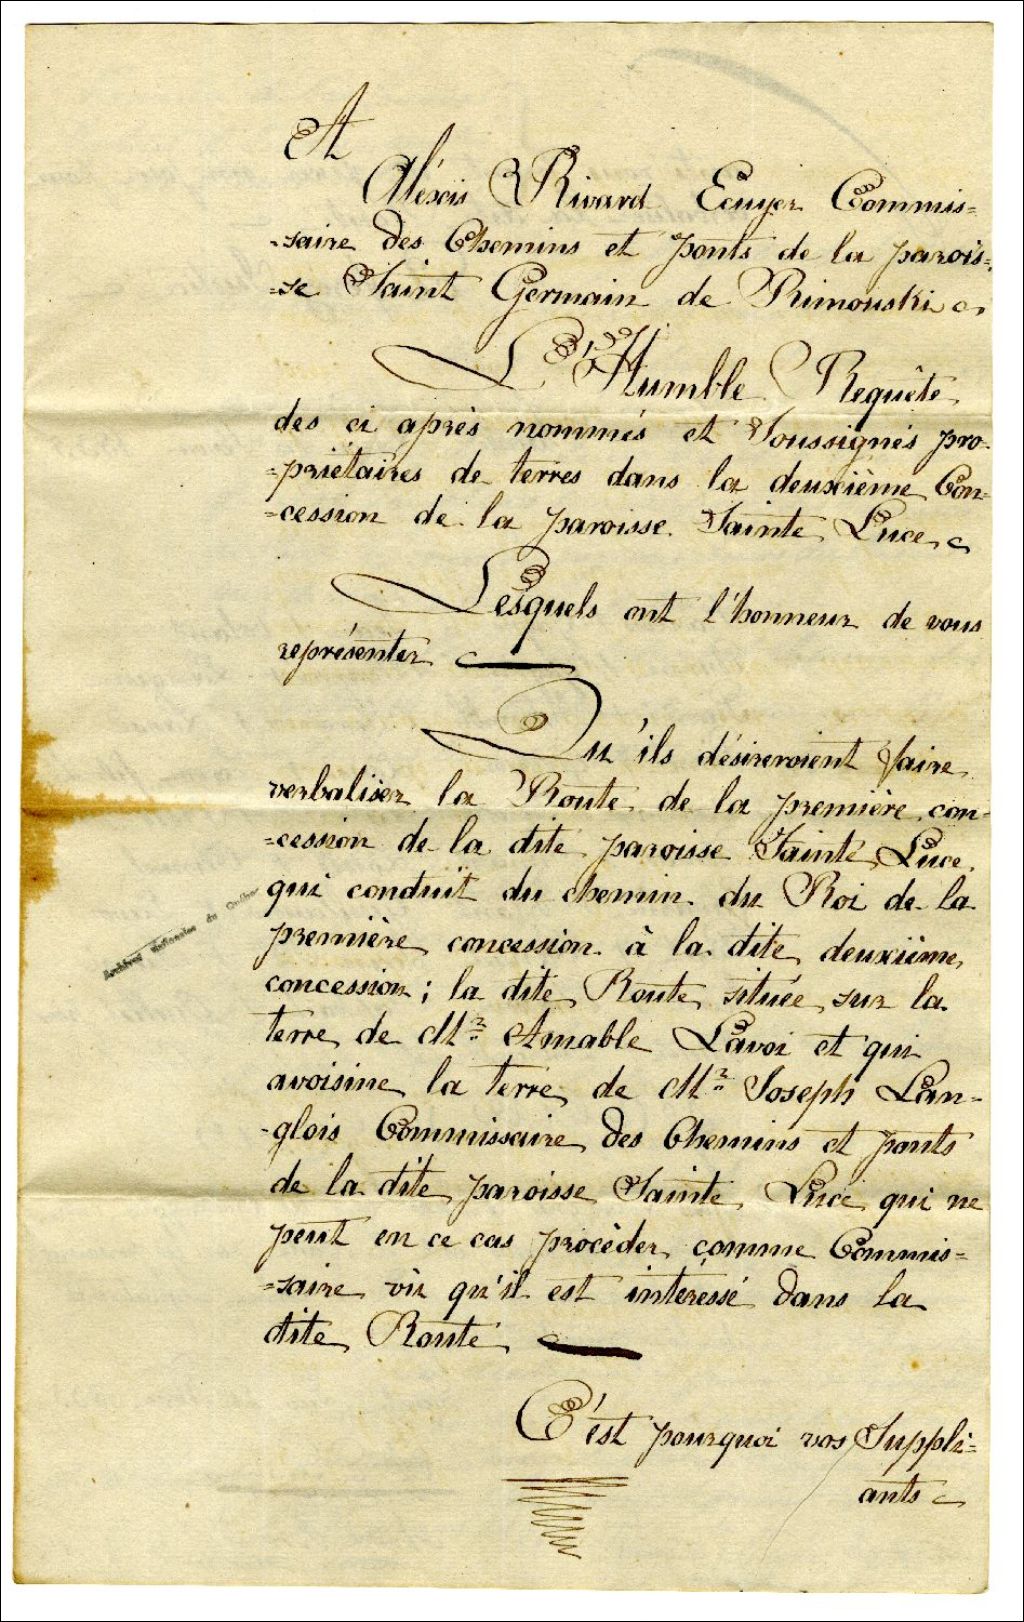 A
Aléxis Rivard Ecuyer Commis=
=saire des Chemins et ponts de la parois=
=se Saint Germain de Rimouski
L'Humble Requête
des ci après nommés et Soussignés pro-
=priétaires de terres dans la deuxième Con=
=cession de la paroisse Sainte Luce
Lesquels ont l'honneur de vous
représenter
Qu'ils désireroient faire
verbaliser la Route de la première con=
=cession de la dite paroisse Sainte Luce
qui conduit du chemin du Roi de la
première concession à la dite deuxième
concession; la dite Route située sur la
terre de Mr Amable Lavoi et qui
avoisine la terre de Mr Joseph Lan-
-glois Commissaire des Chemins et ponts
de la dite paroisse Sainte Luce qui ne
peut en ce cas procèder comme Commis=
=saire vû qu'il est intéressé dans la
dite Route
C'est pourquoi vos Suppli=
ants
Archives Nationales du Québec